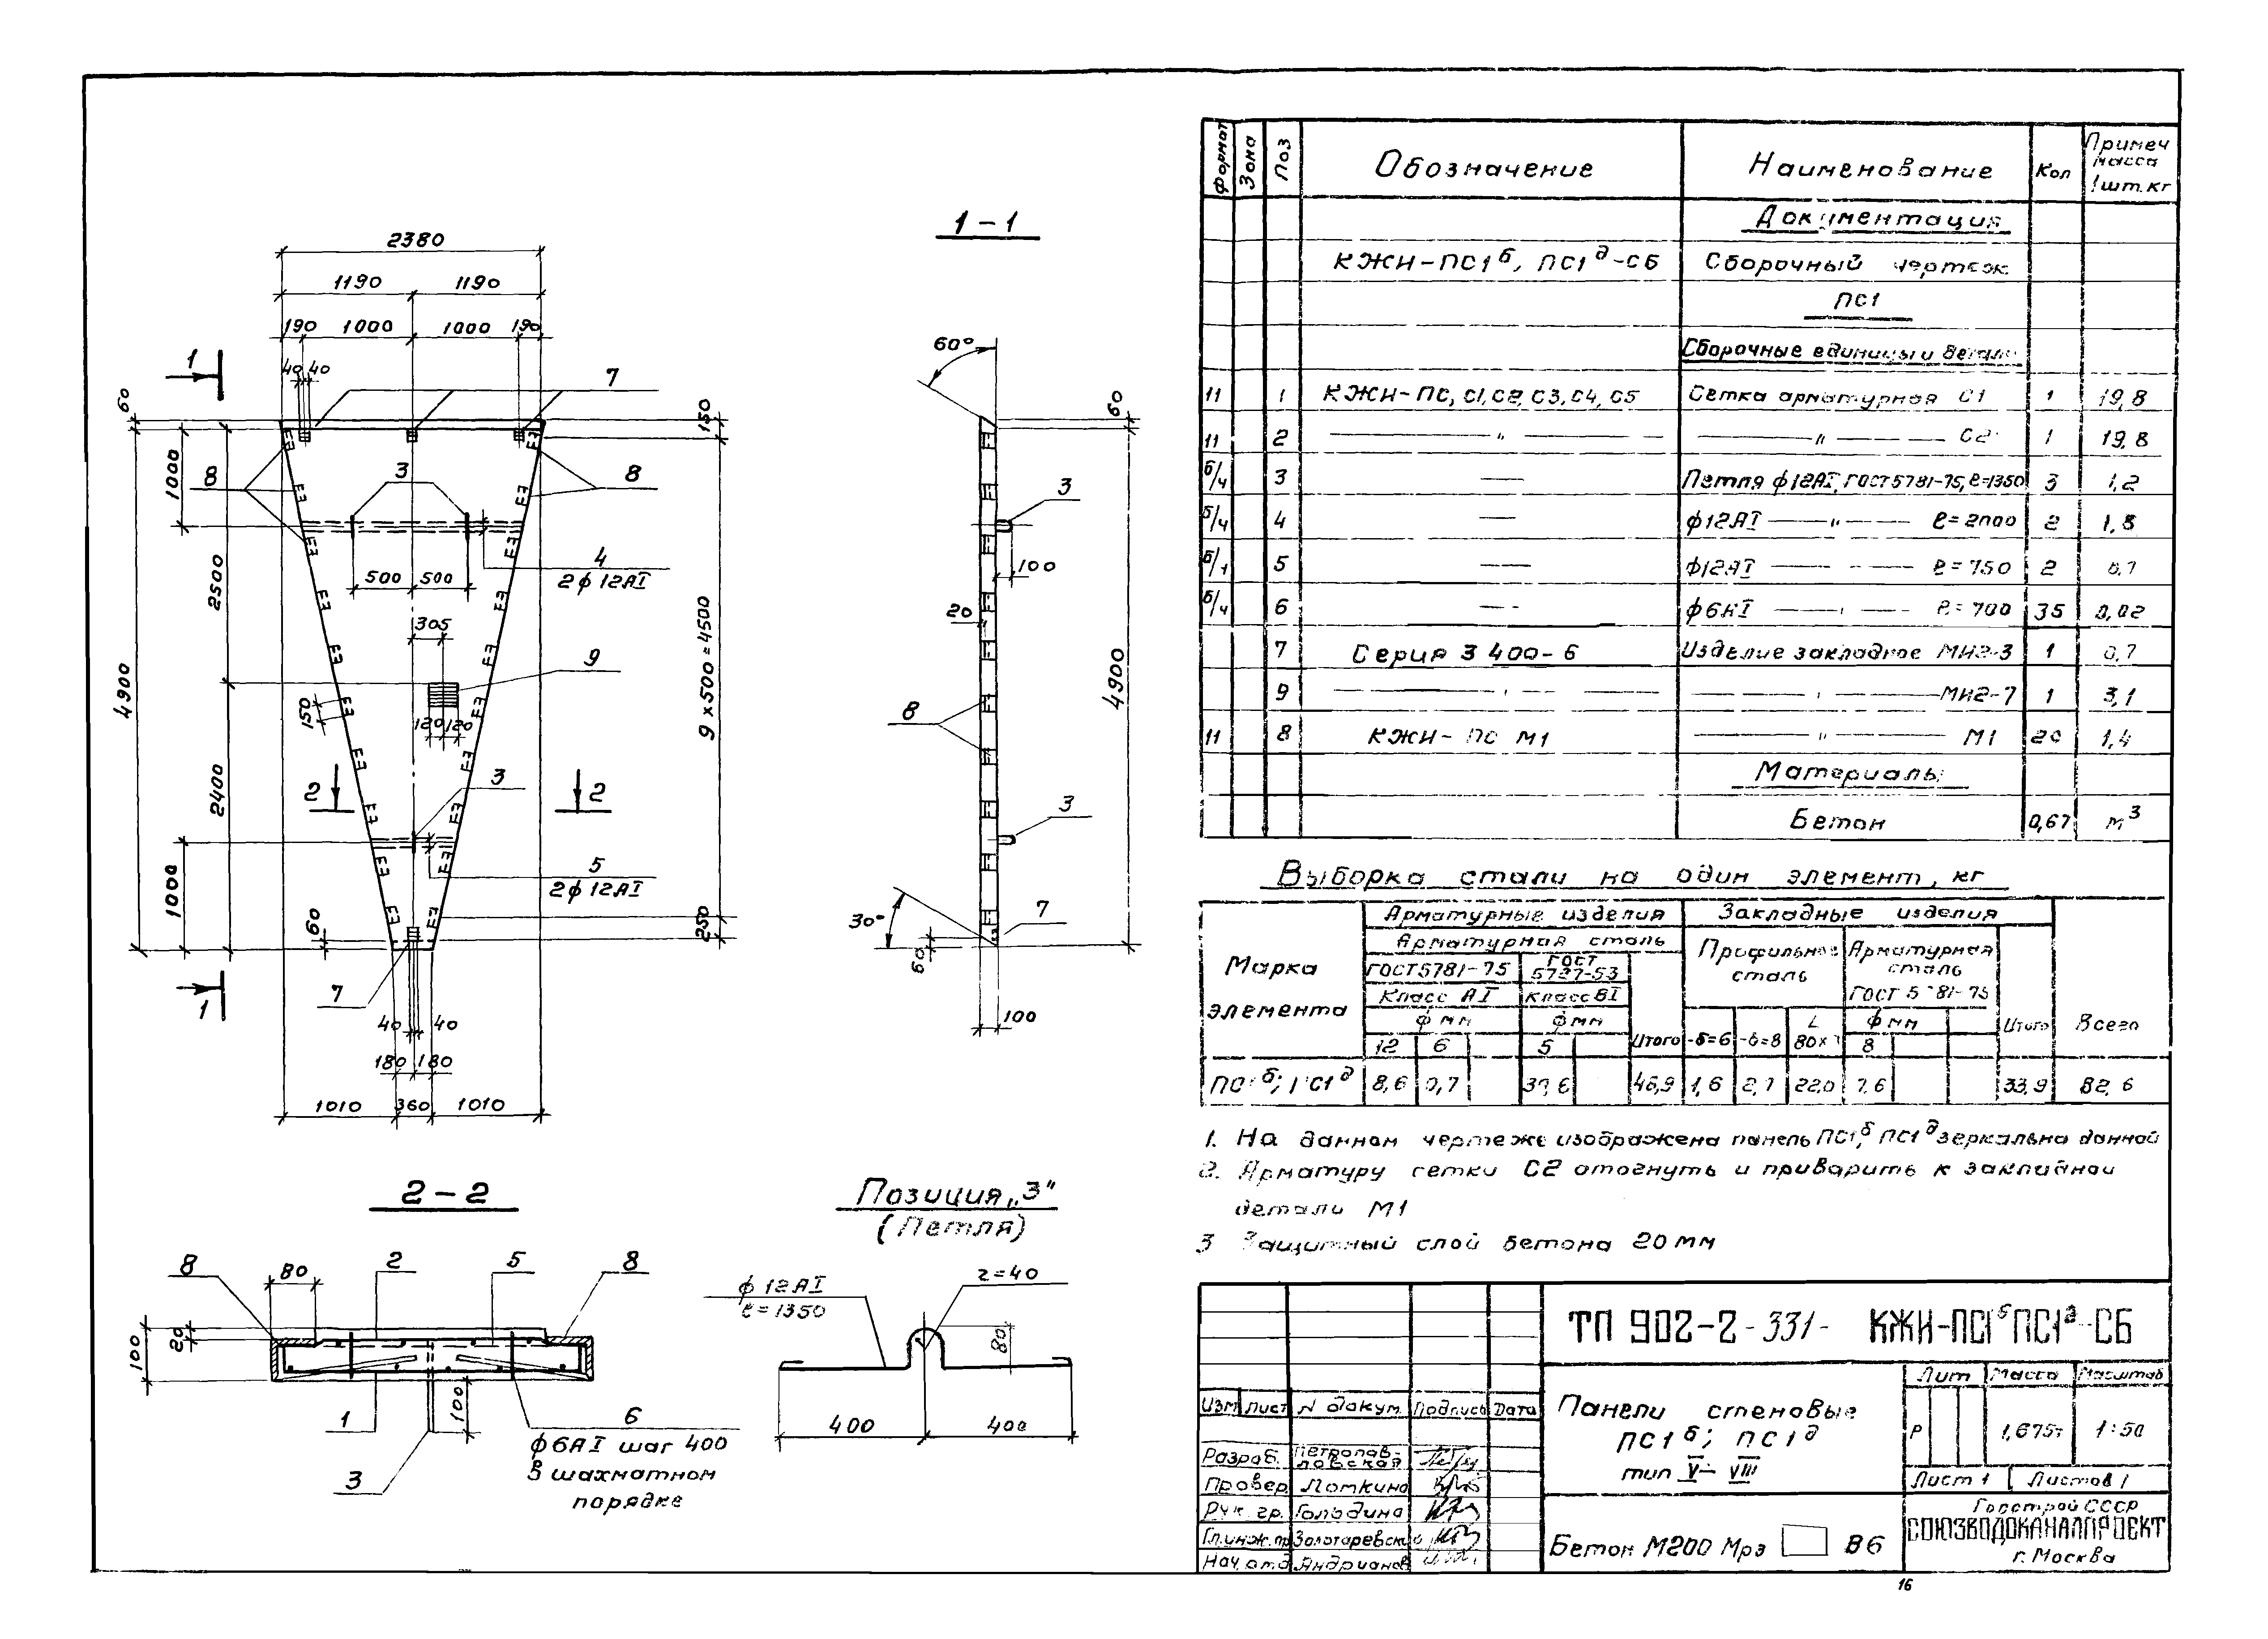 2380
1190 1190
190 1000 1000 190
40 40
1 7
60 150
1000 8 3 8
4
2ф12АI
500 500
2500
305
9
4900
150
120 120
9 x 500 = 4500
2400
2 3 2
5
2ф12АI
1000
60 250
1 7
40 40
180 180
1010 360 1010
1-1
60°
60
3
100
20
4900
8
3
30° 7
60
100
2-2
8 80 2 5 8
100 20
100
1 6
ф6АI шаг 400
в шахматном
порядке
3
Позиция „3"
(Петля)
ф12АI
ℓ=1350
r=40
80
400 400
Формат Зона Поз Обозначение Наименование Кол Примеч масса 1шт.кг
Документация
КЖИ-ПС1б, ПС1д-СБ Сборочный чертеж
ПС1
Сборочные единицы и детали
11 1 КЖИ-ПС, С1, С2, С3, С4, С5 Сетка арматурная С1 1 19,8
11 2 — " — — " — С2 1 19,8
б/ч 3 — Петля ф12АI, ГОСТ 5781-75, ℓ=1350 3 1,2
б/ч 4 — ф12АI — " — ℓ=2000 2 1,8
5 — ф12АI — " — ℓ=750 2 0,7
б/ч 6 — ф6АI — " — ℓ=700 35 0,02
7 Серия 3 400-6 Изделие закладное МИ2-3 1 0,7
9 — " — — " — МИ2-7 1 3,1
11 8 КЖИ- ПС М1 — " — М1 20 1,4
Материалы
Бетон 0,67 м3
Выборка стали на один элемент, кг
Марка элемента Арматурные изделия Закладные изделия Всего
Арматурная сталь Профильная сталь Арматурная сталь
ГОСТ 5781-75 ГОСТ ГОСТ 5781-75
Класс АI Класс ВI
ф мм ф мм Итого -δ=6 -δ=8 ф мм Итого
12 6 5 8
ПС1б; ПС1д 8,6 0,7 46,9 1,6 2,7 22,0 7,6 33,9 82,6
1. На данном чертеже изображена панель ПС1б, ПС1д зеркальна данной
2. Арматуру сетки С2 отогнуть и приварить к закладной
детали М1
3 Защитный слой бетона 20 мм
ТП 902-2-331- КЖИ-ПС1б ПС1д-СБ
Изм Лист N докум. Подпись Дата
Панели стеновые
ПС1б; ПС1д
тип V÷VIII
Лит Масса Масштаб
Р 1,675т 1:50
Лист 1 Листов 1
Разраб. Петропавловская
Провер Лоткина
Рук. гр. Гольдина
Гл.инж.пр Золотаревский
Нач.отд Андрианов
Бетон М200 Мрз В6
Госстрой СССР
СОЮЗВОДОКАНАЛПРОЕКТ
г. Москва
16